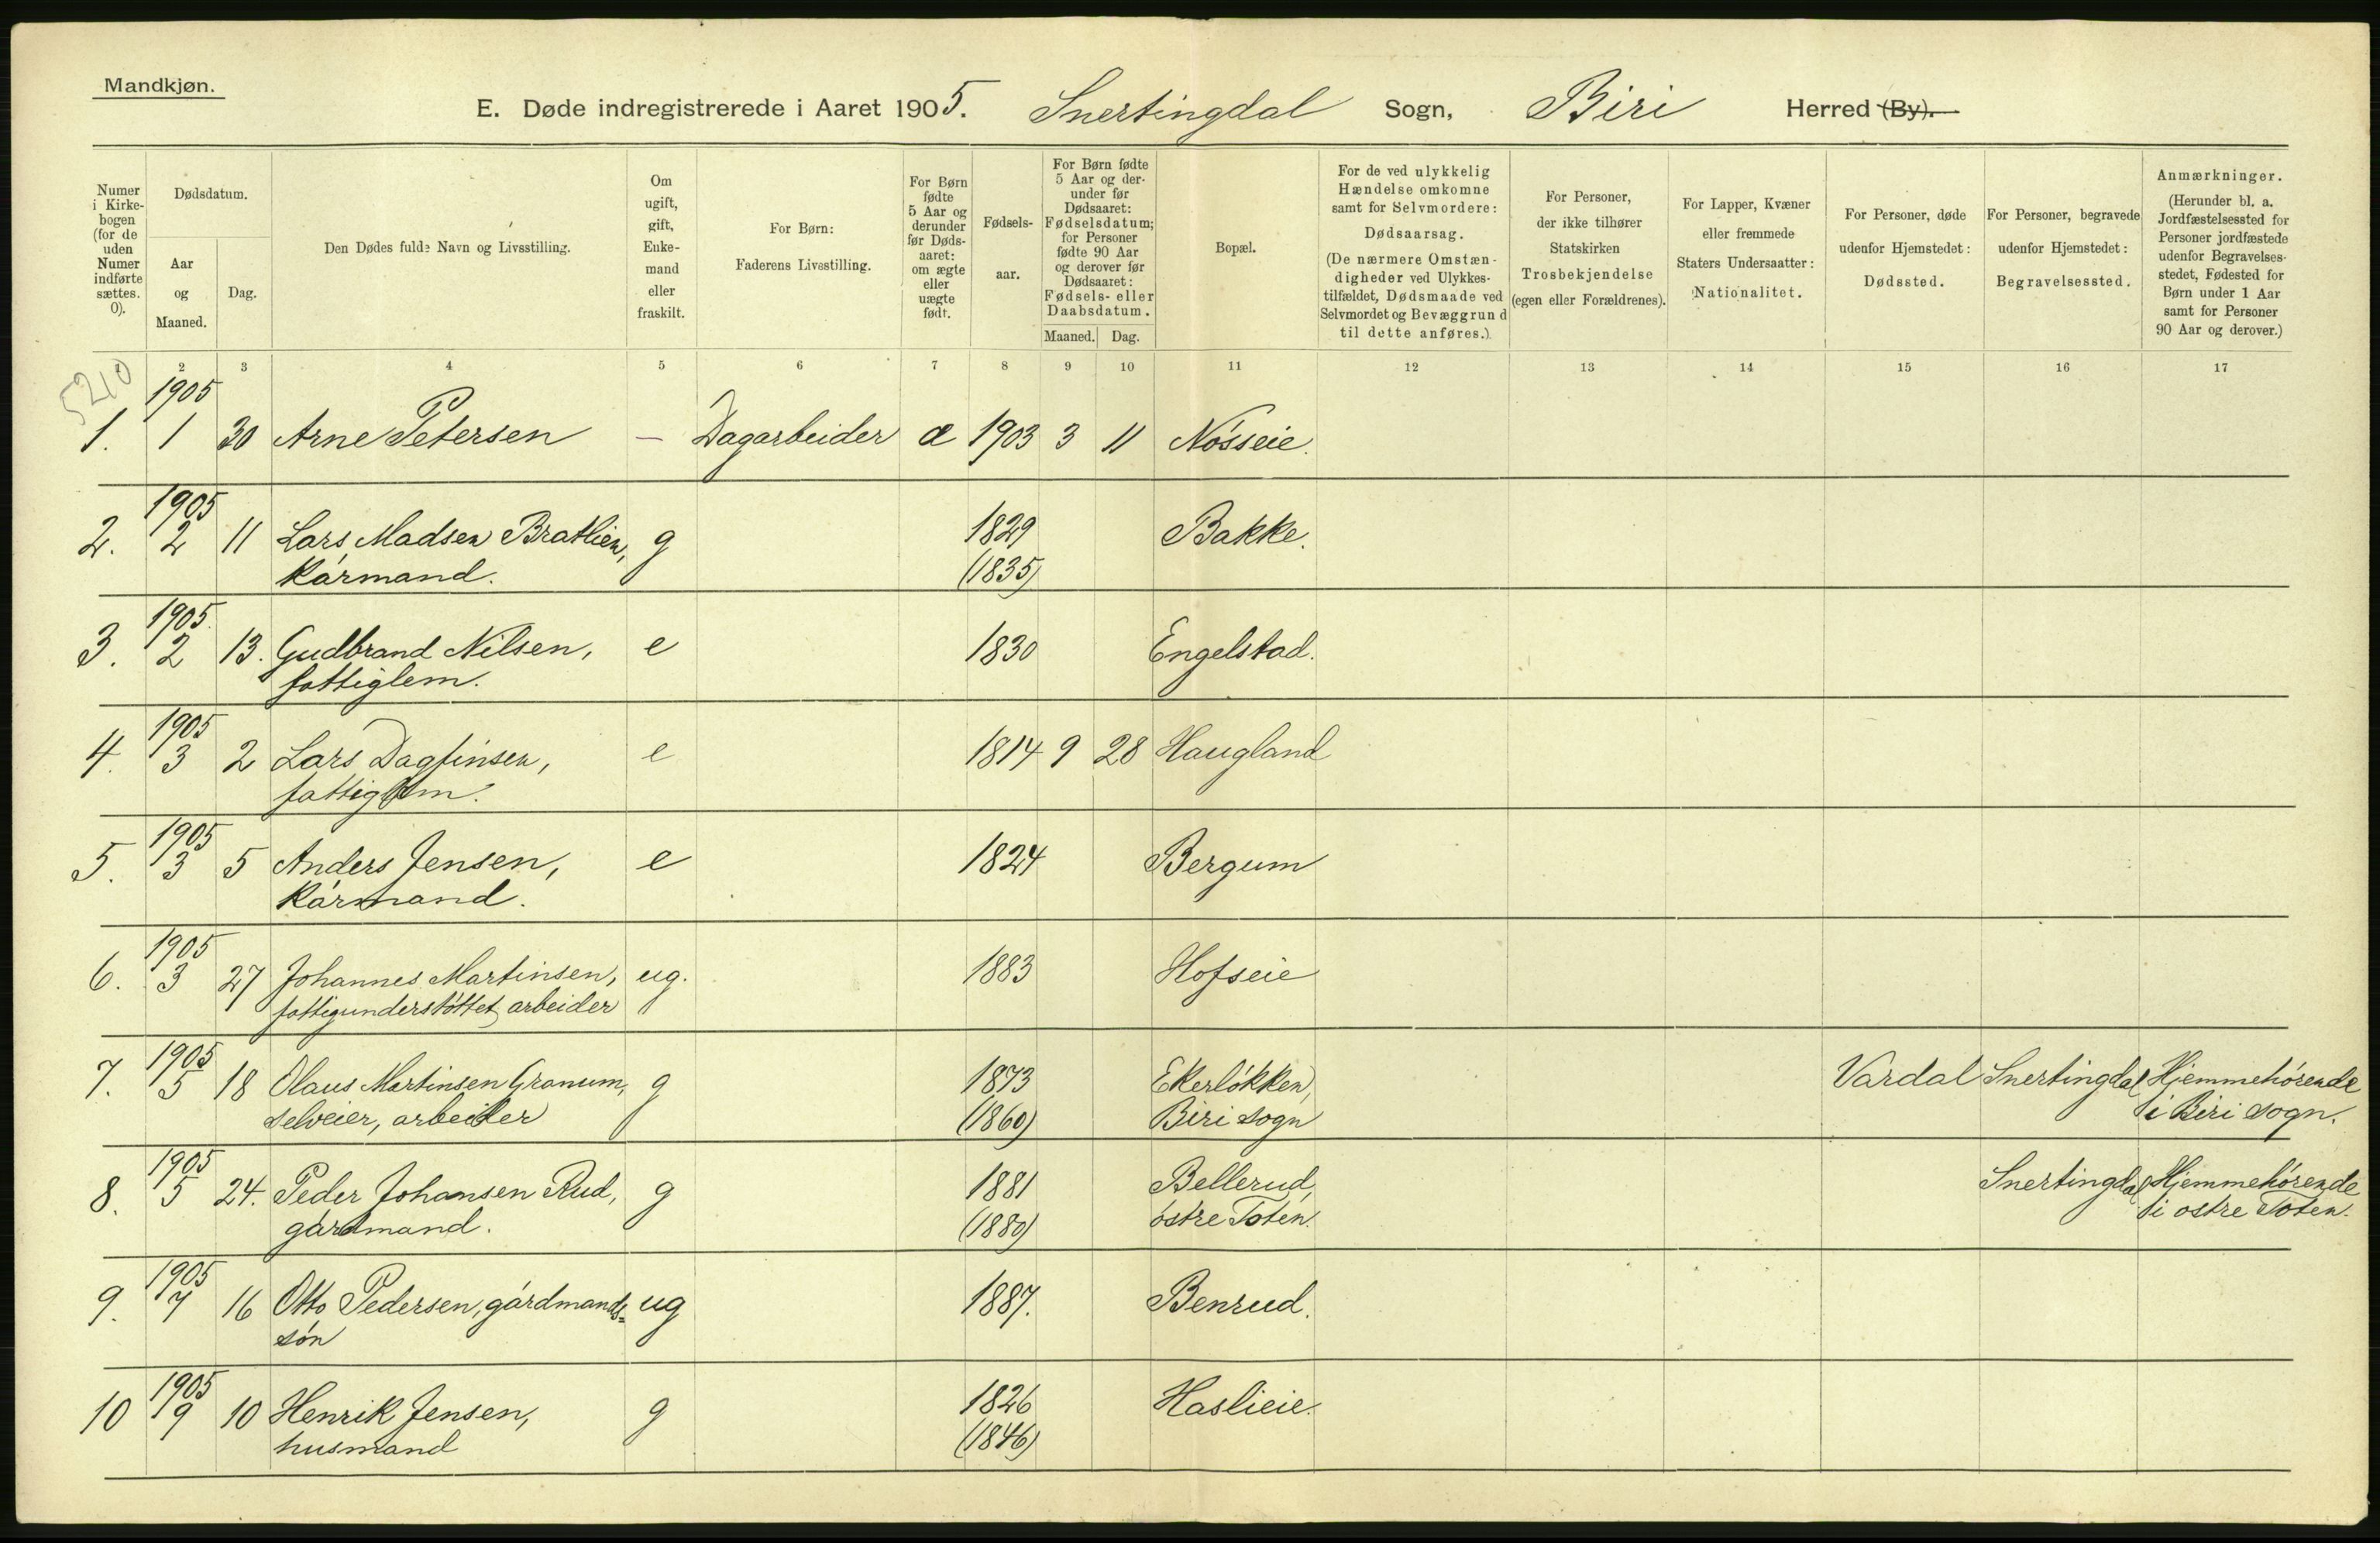 Mandkjøn.
E. Døde indregistrerede i Aaret 1905. Snertingdal Sogn, Biri Herred (By).
Numer
i Kirke-
bogen
(for de
uden
Numer
indførte
sættes.
0).
Dødsdatum.
Aar
og
Maaned.
Dag.
Den Dødes fulde Navn og Livsstilling.
Om
ugift,
gift,
Enke-
mand
eller
fraskilt.
For Børn:
Faderens Livsstilling.
For Børn
fødte
5 Aar og
derunder
før Døds-
aaret:
om ægte
eller
uægte
født.
Fødsels-
aar.
For Børn fødte
5 Aar og der-
under før
Dødsaaret:
Fødselsdatum;
for Personer
fødte 90 Aar
og derover før
Dødsaaret:
Fødsels- eller
Daabsdatum.
Maaned. Dag.
Bopæl.
For de ved ulykkelig
Hændelse omkomne
samt for Selvmordere:
Dødsaarsag.
(De nærmere Omstæn-
digheder ved Ulykkes-
tilfældet, Dødsmaade ved
Selvmordet og Bevæggrund
til dette anføres.).
For Personer,
der ikke tilhører
Statskirken
Trosbekjendelse
(egen eller Forældrenes).
For Lapper, Kvæner
eller fremmede
Staters Undersaatter:
Nationalitet.
For Personer, døde
udenfor Hjemstedet:
Dødssted.
For Personer, begravede
udenfor Hjemstedet:
Begravelsessted.
Anmærkninger.
(Herunder bl. a.
Jordfæstelsessted for
Personer jordfæstede
udenfor Begravelses-
stedet, Fødested for
Børn under 1 Aar
samt for Personer
90 Aar og derover.)
2 3 4 5 6 7 8 9 10 11 12 13 14 15 16 17
5210
1905
1. 1 30 Arne Petersen — Dagarbeider æ 1903 3 11 Nósseie.
1905
2. 2 11 Lars Madsen Bratlien, g 1829 Bakke.
kármand. (1835)
1905
3. 2 13. Gudbrand Nilsen, e 1830 Engelstad.
fattiglem.
1905
4. 3 2 Lars Dagfinsen, e 1814 9 28 Haugland
fattiglem.
1905
5. 3 5 Anders Jensen, e 1824 Bergum
kármand.
1905
6. 3 27 Johannes Martinsen, ug. 1883 Hofseie
fattigunderstóttet arbeider
1905
7. 5 18 Olaus Martinsen Granum, g 1873 Ekerlókken, Vardal Snertingdal Hjemmehórende
selveier, arbeider (1860) Biri sogn i Biri sogn.
1905
8. 5 24. Peder Johansen Rud, g 1881 Bellerud, Snertingdal Hjemmehórende
gárdmand. (1880) óstre Toten. i ostre Toten.
1905
9. 7 16 Otto Pedersen, gárdmands= ug 1887. Benrud.
són
1905
10 9 10 Henrik Jensen, g 1826 Haslieie.
husmand (1846)